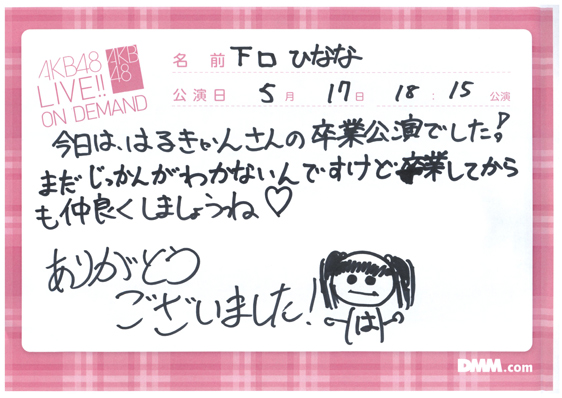 AKB48
LIVE!!
ON DEMAND
AKB
48
名前 下口ひなな
公演日 5月 17日 18:15 公演
今日は、はるきゃんさんの卒業公演でした!
まだじっかんがわかないんですけど卒業してから
も仲良くしましょうね♡
ありがとう
ございました!
は
DMM.com